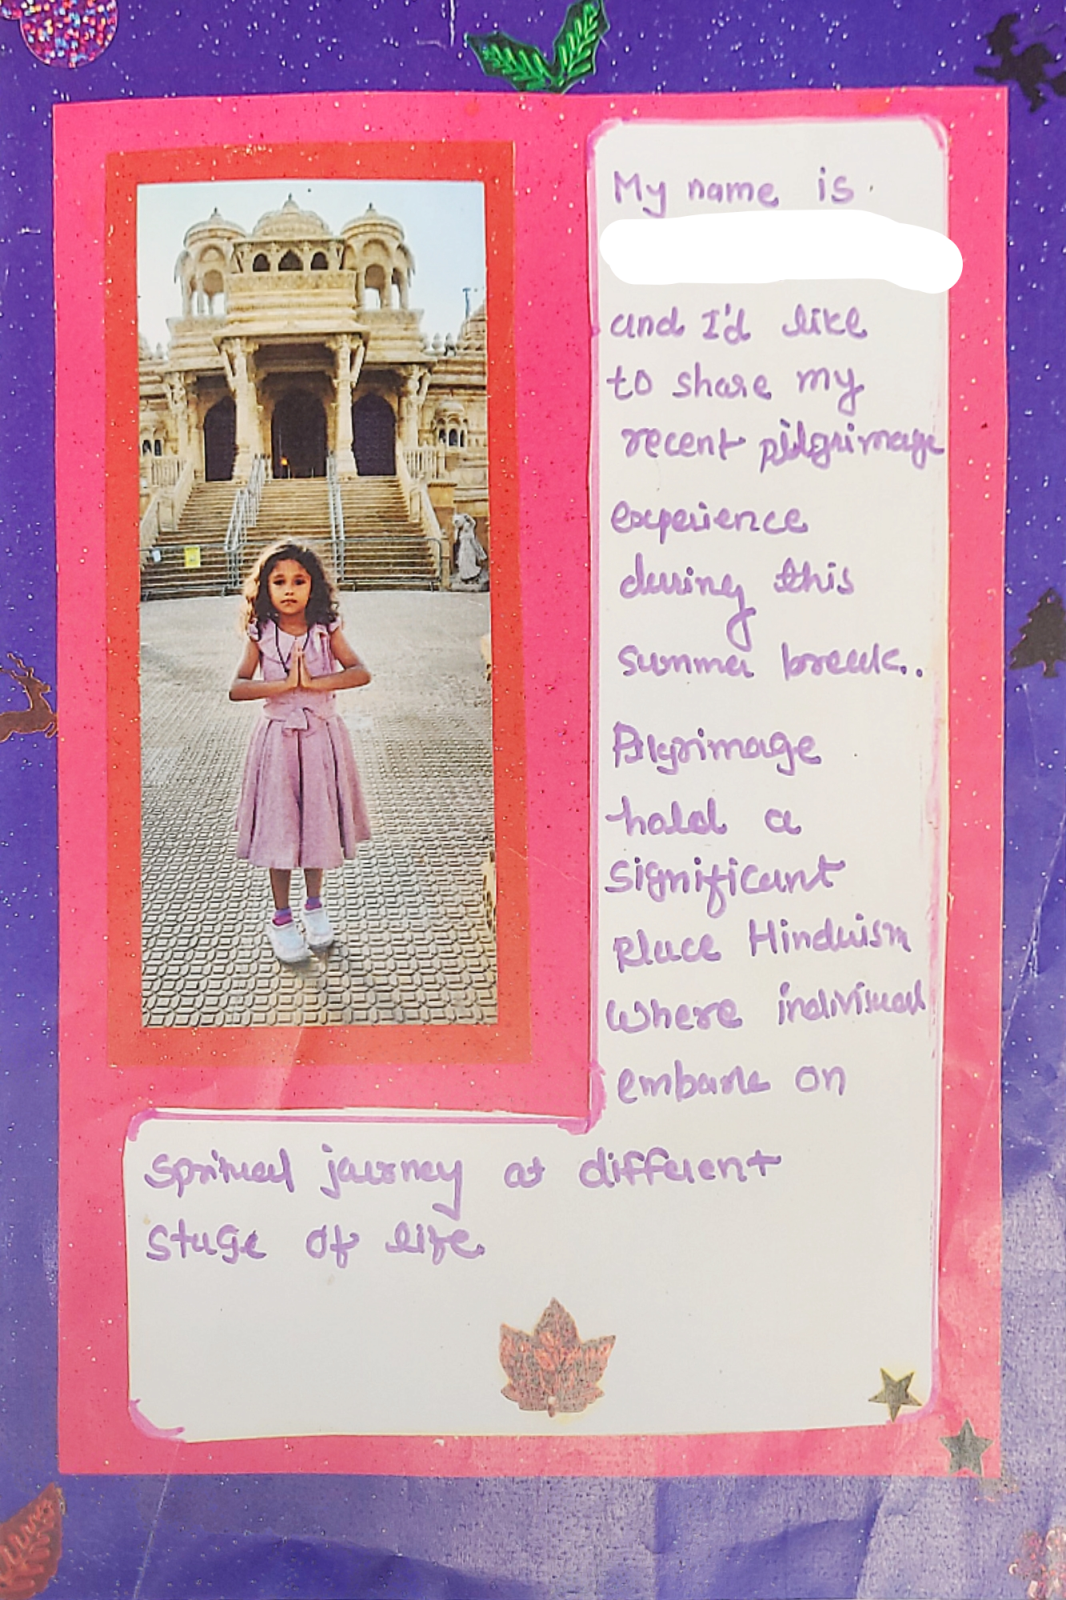 My name is
and I'd like
to share my
recent pilgrimage
experience
during this
summer break..
Pilgrimage
hold a
significant
place Hinduism
where individual
embark on
Spritual journey at different
stage of life